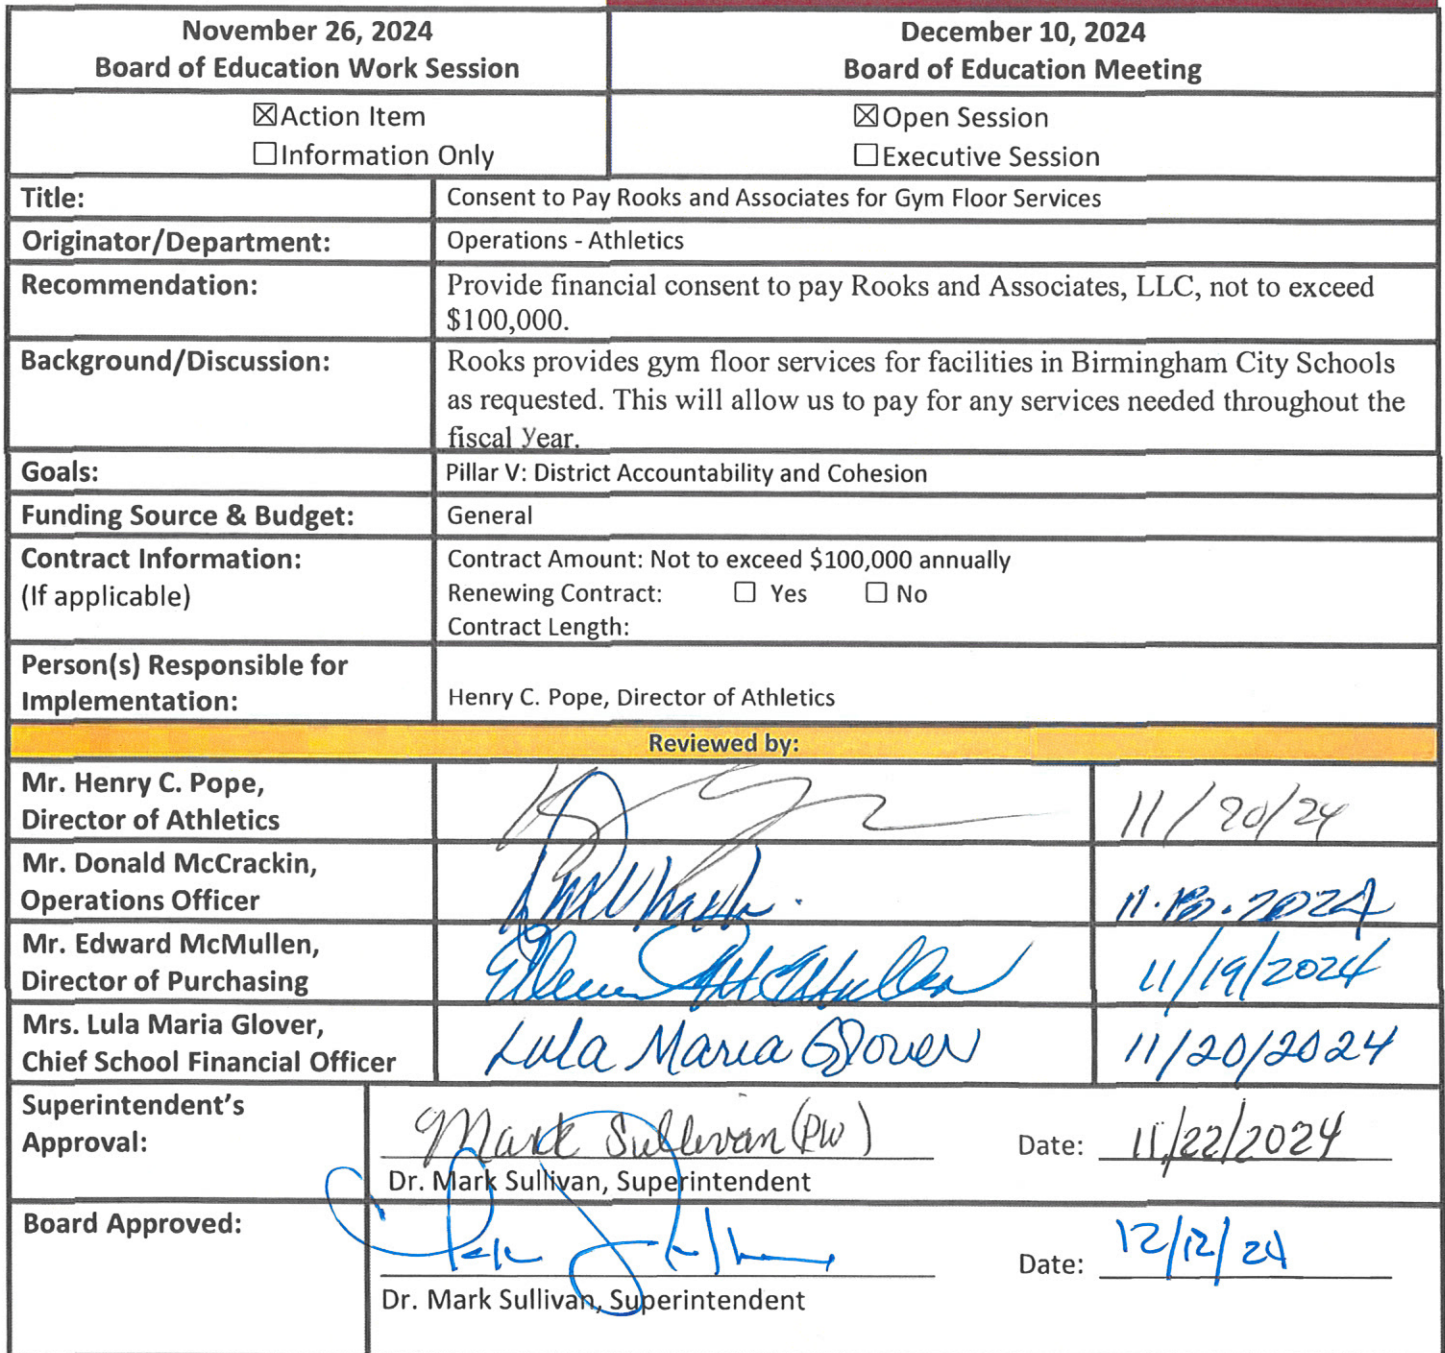 November 26, 2024
Board of Education Work Session
December 10, 2024
Board of Education Meeting
☒Action Item
☐Information Only
☒Open Session
☐Executive Session
Title:
Consent to Pay Rooks and Associates for Gym Floor Services
Originator/Department:
Operations - Athletics
Recommendation:
Provide financial consent to pay Rooks and Associates, LLC, not to exceed
$100,000.
Background/Discussion:
Rooks provides gym floor services for facilities in Birmingham City Schools
as requested. This will allow us to pay for any services needed throughout the
fiscal year.
Goals:
Pillar V: District Accountability and Cohesion
Funding Source & Budget:
General
Contract Information:
(If applicable)
Contract Amount: Not to exceed $100,000 annually
Renewing Contract: ☐ Yes ☐ No
Contract Length:
Person(s) Responsible for
Implementation:
Henry C. Pope, Director of Athletics
Reviewed by:
Mr. Henry C. Pope,
Director of Athletics
11/20/24
Mr. Donald McCrackin,
Operations Officer
Mr. Edward McMullen,
Director of Purchasing
11/19/2024
Mrs. Lula Maria Glover,
Chief School Financial Officer
Lula Maria Glover
11/20/2024
Superintendent's
Approval:
Mark Sullivan (PW)
Date: 11/22/2024
Dr. Mark Sullivan, Superintendent
Board Approved:
Date: 12/12/24
Dr. Mark Sullivan, Superintendent